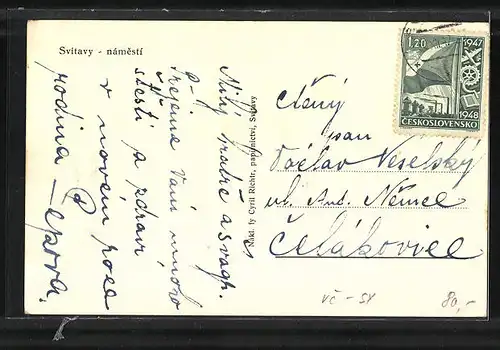 Svitavy - náměstí
Milý bratře a švagr.
Přejeme Vám mnoho
štěstí a zdraví
v novém roce
rodina
Nákl. fy Cyril Richtr, papírnictví, Svitavy
1.20
1947
1948
ČESKOSLOVENSKO
Ctěný
pan
Václav Veselský
ul. Ant. Němce
Čelákovice
vč - sy
80,-